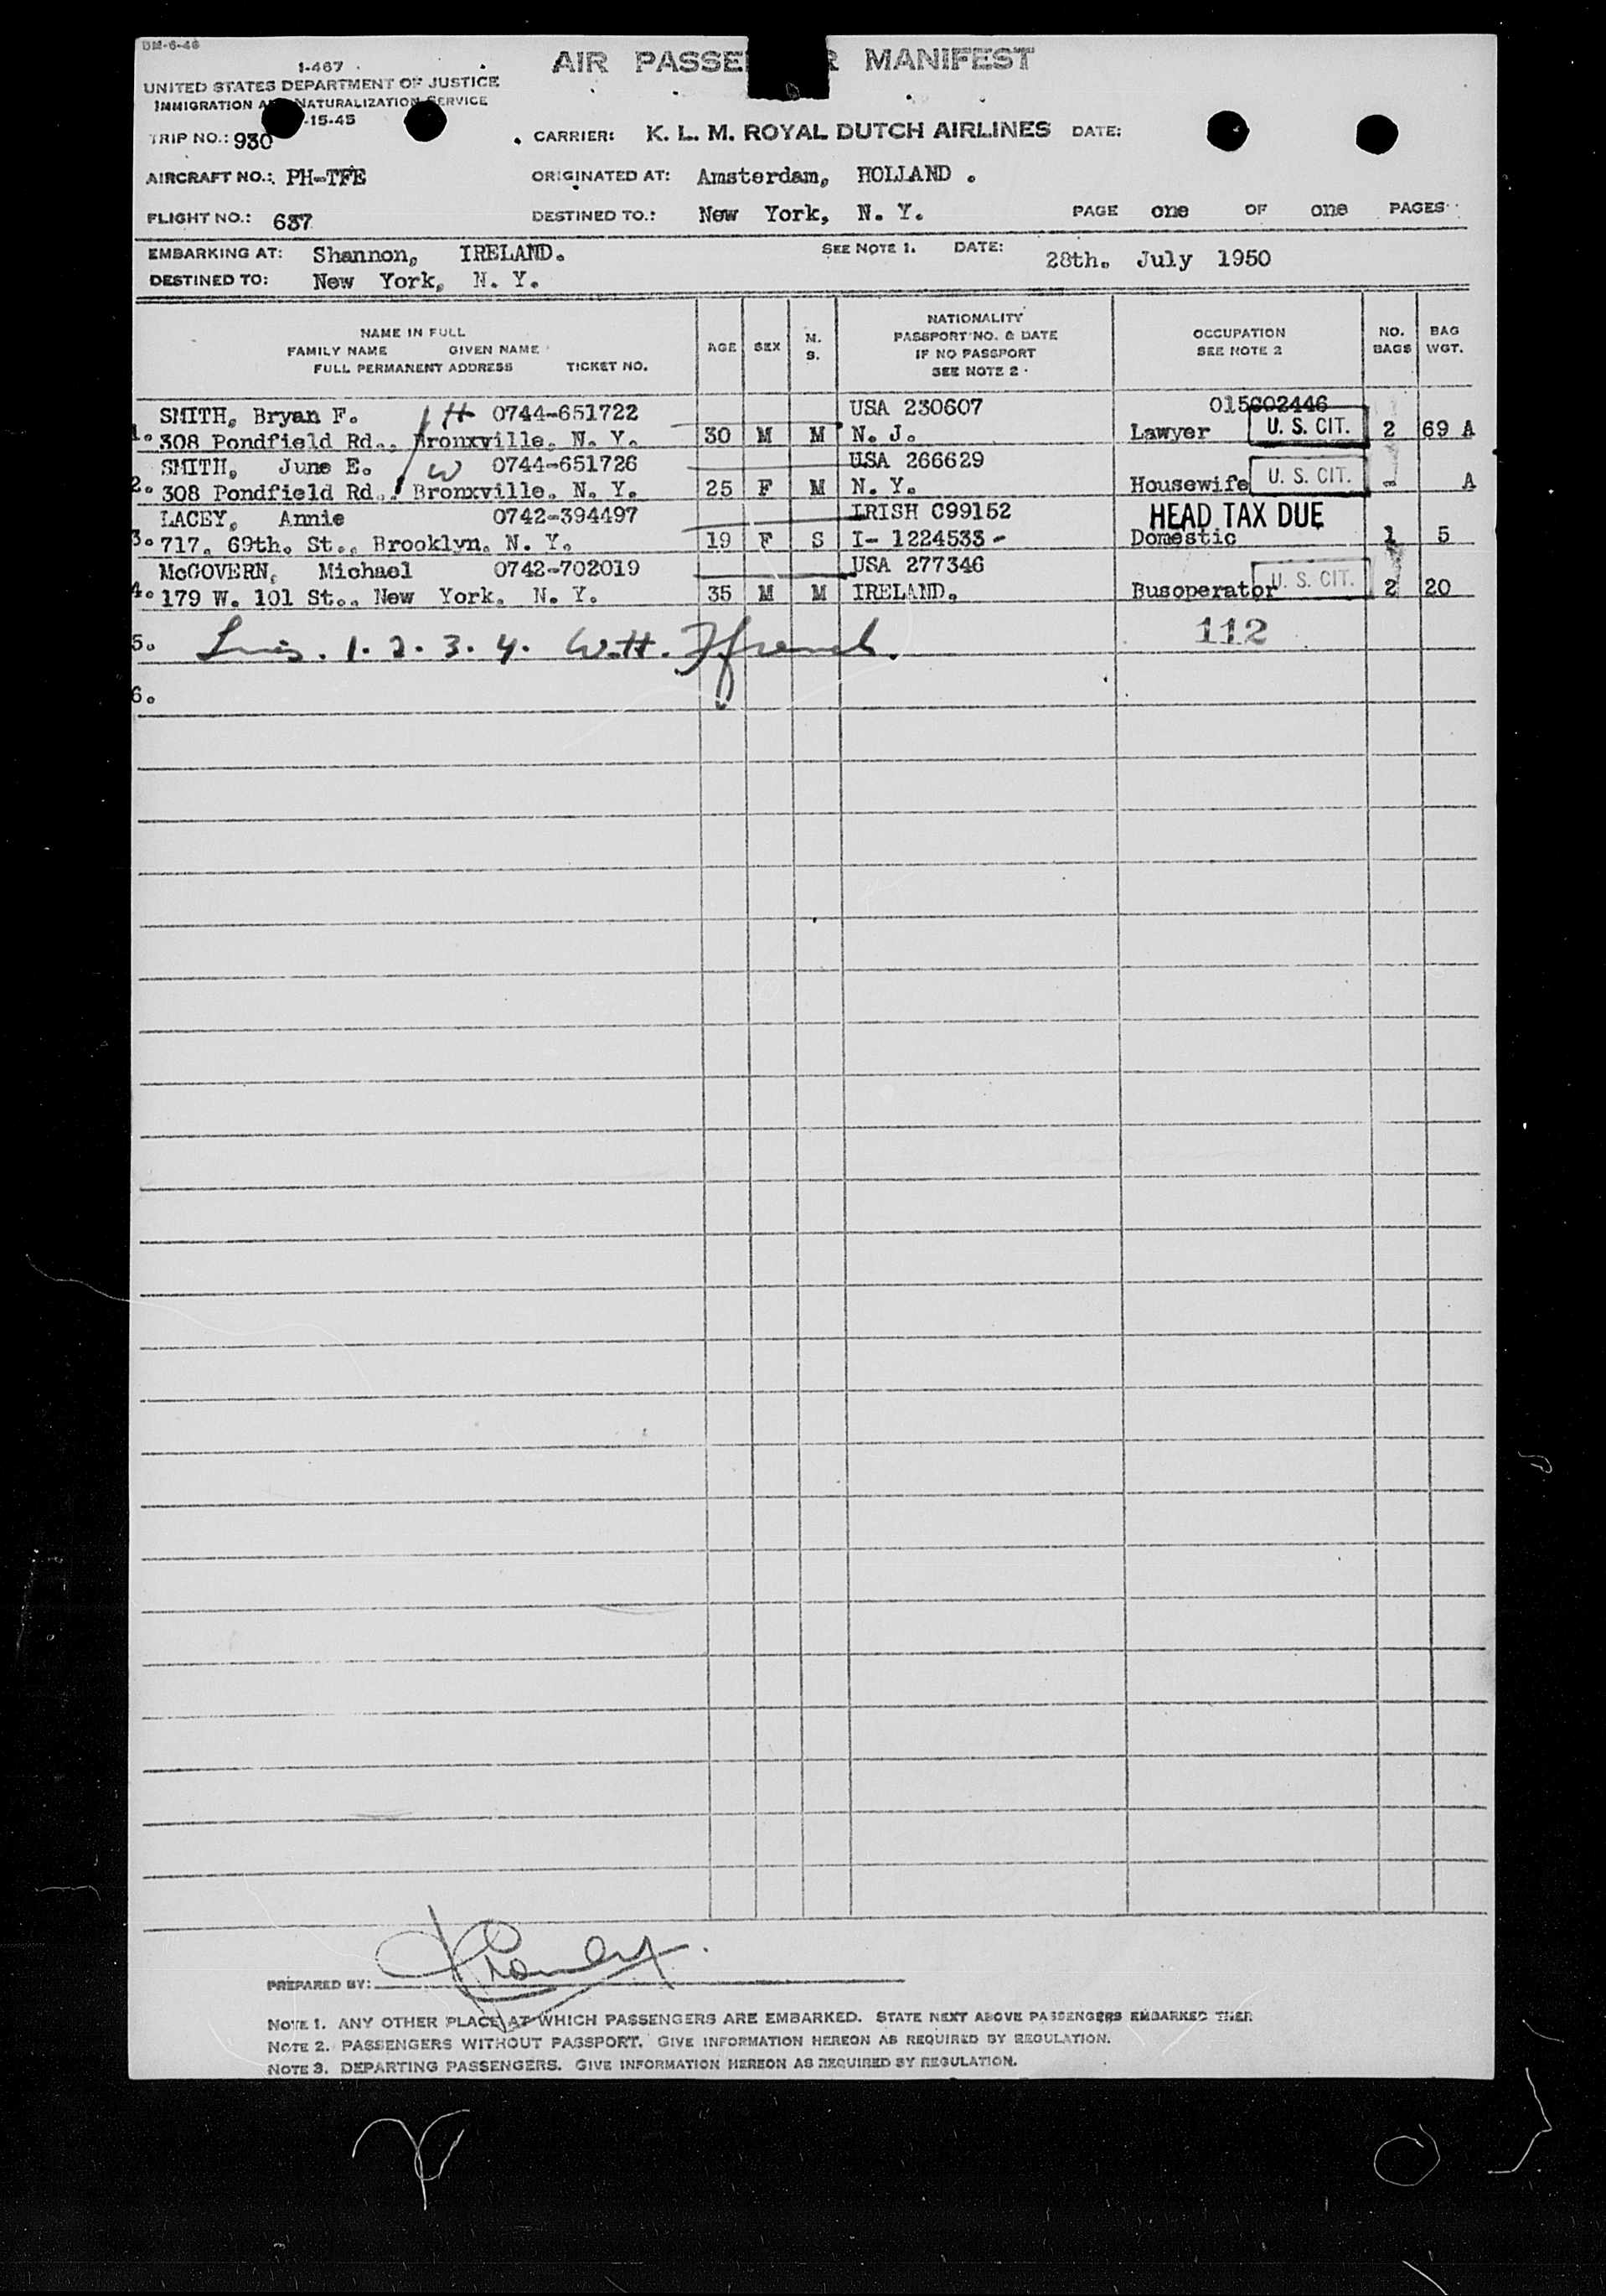 BM-6-46
AIR PASSE R MANIFEST
1-467
UNITED STATES DEPARTMENT OF JUSTICE
IMMIGRATION A NATURALIZATION SERVICE
-15-45
TRIP NO.: 930 CARRIER: K. L. M. ROYAL DUTCH AIRLINES DATE:
AIRCRAFT NO.: PH-TFE ORIGINATED AT: Amsterdam, HOLLAND .
FLIGHT NO.: 637 DESTINED TO.: New York, N. Y. PAGE one OF one PAGES
EMBARKING AT: Shannon, IRELAND. SEE NOTE 1. DATE: 28th. July 1950
DESTINED TO: New York, N. Y.
NAME IN FULL
FAMILY NAME GIVEN NAME
FULL PERMANENT ADDRESS TICKET NO.
AGE SEX M. S.
NATIONALITY
PASSPORT NO. & DATE
IF NO PASSPORT
SEE NOTE 2
OCCUPATION
SEE NOTE 2
NO. BAGS
BAG WGT.
SMITH, Bryan F. H 0744-651722 USA 230607 015602446
1. 308 Pondfield Rd., Bronxville, N. Y. 30 M M N. J. Lawyer U. S. CIT. 2 69 A
SMITH, June E. W 0744-651726 USA 266629
2. 308 Pondfield Rd., Bronxville, N. Y. 25 F M N. Y. Housewife U. S. CIT. - A
LACEY, Annie 0742-394497 IRISH C99152 HEAD TAX DUE
3. 717, 69th. St., Brooklyn, N. Y. 19 F S I- 1224533 - Domestic 1 5
McGOVERN, Michael 0742-702019 USA 277346
4. 179 W. 101 St., New York, N. Y. 35 M M IRELAND. Busoperator U. S. CIT. 2 20
5. 1. 2. 3. 4. 112
6.
PREPARED BY:
NOTE 1. ANY OTHER PLACE AT WHICH PASSENGERS ARE EMBARKED. STATE NEXT ABOVE PASSENGERS EMBARKED THER
NOTE 2. PASSENGERS WITHOUT PASSPORT. GIVE INFORMATION HEREON AS REQUIRED BY REGULATION.
NOTE 3. DEPARTING PASSENGERS. GIVE INFORMATION HEREON AS REQUIRED BY REGULATION.